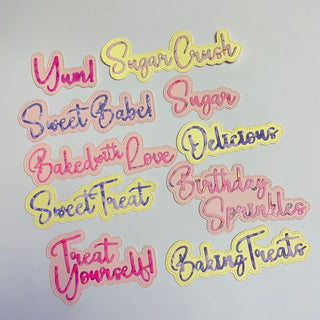 Yum!
Sugar Crush
Sweet Babe!
Sugar
Baked with Love
Delicious
Sweet Treat
Birthday
Sprinkles
Treat
Yourself!
Baking Treats